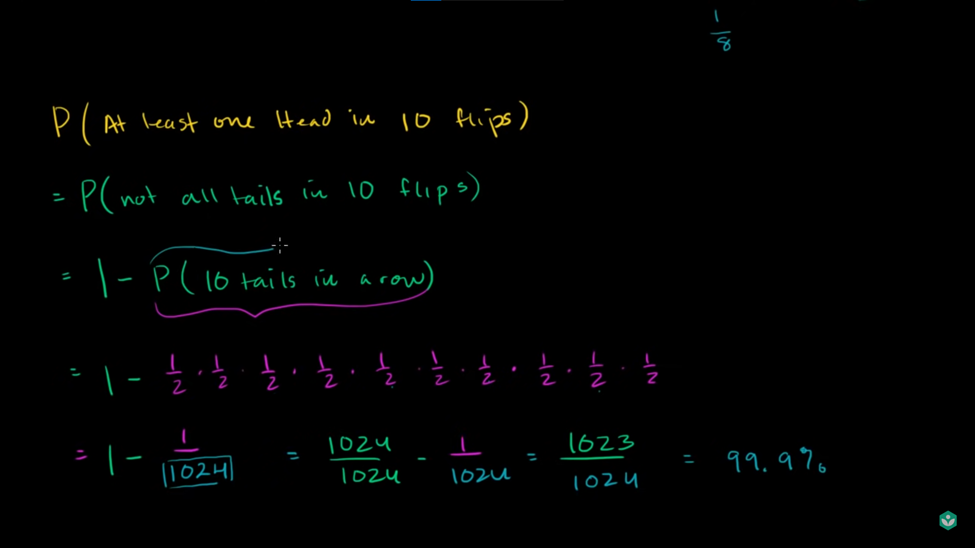 1/8
P(At least one Head in 10 flips)
= P(not all tails in 10 flips)
= 1 - P(10 tails in a row)
= 1 - 1/2 · 1/2 · 1/2 · 1/2 · 1/2 · 1/2 · 1/2 · 1/2 · 1/2 · 1/2
= 1 - 1/1024 = 1024/1024 - 1/1024 = 1023/1024 = 99.9%